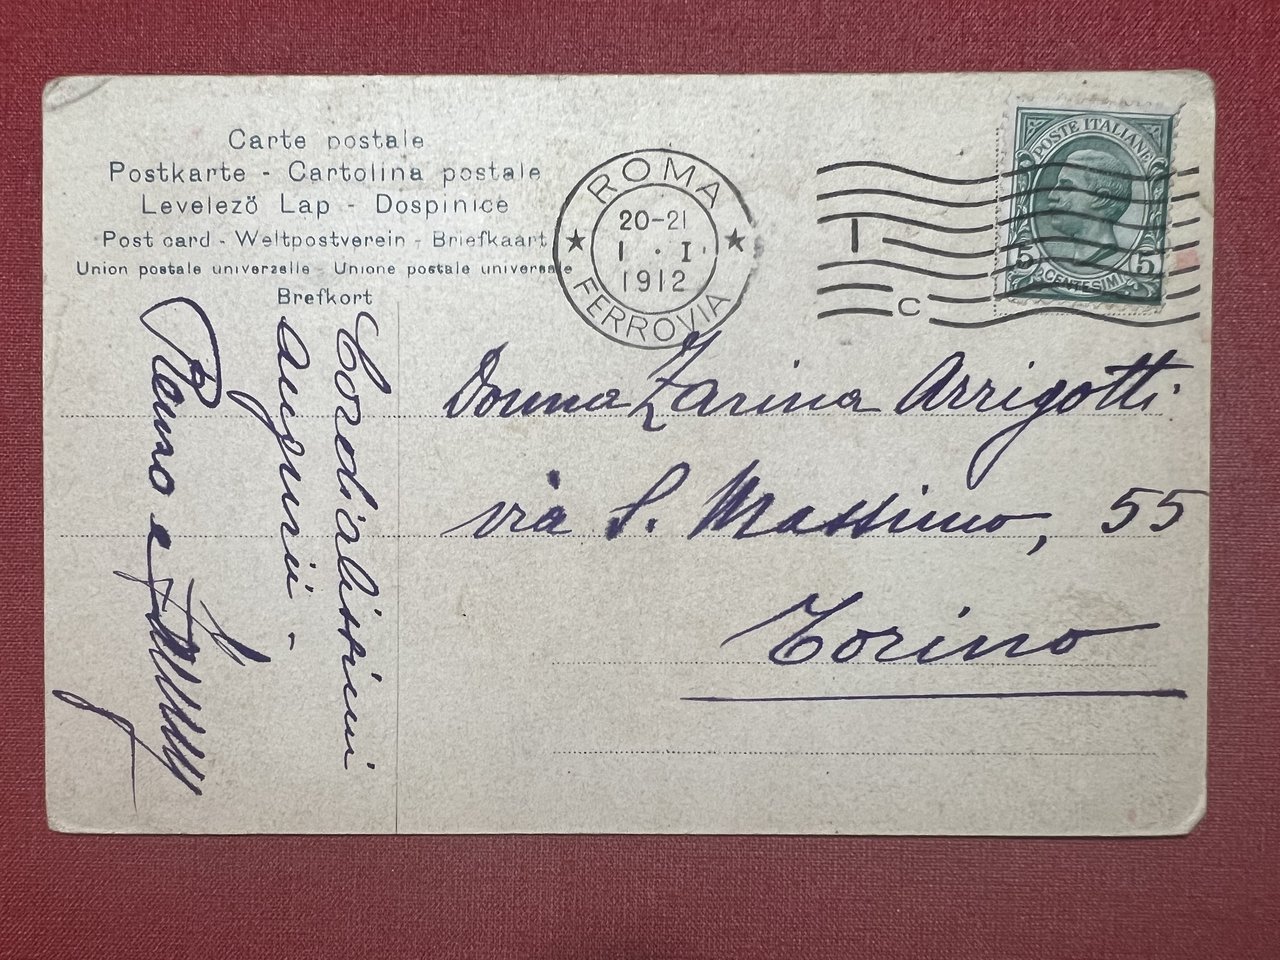 Carte postale
Postkarte - Cartolina postale
Levelező Lap - Dospinice
Post card - Weltpostverein - Briefkaart
Union postale universelle - Unione postale universale
Brefkort
ROMA
20-21
1 · I
1912
FERROVIA
I
C
POSTE ITALIANE
5 5
CENTESIMI
Donna Zarina Arrigotti
via S. Massimo, 55
Torino
Cordialissimi
auguri -